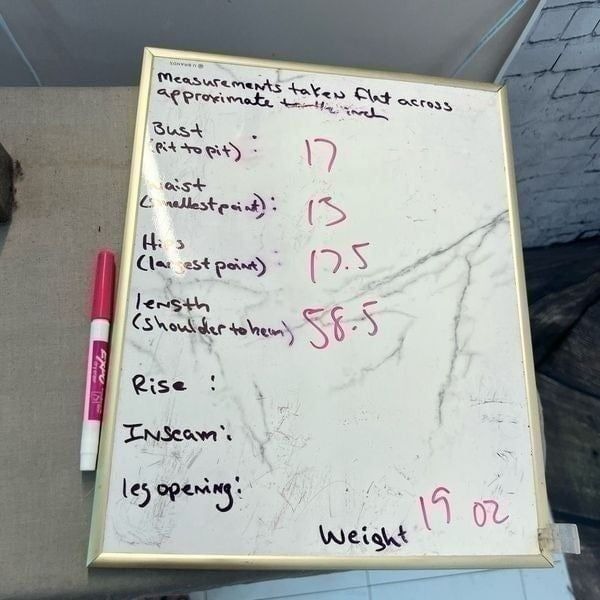 U BRANDS
measurements taken flat across
approximate to the inch
Bust
(pit to pit) : 17
waist
(smallest point) : 15
Hips
(largest point) 17.5
length
(shoulder to hem) 58.5
Rise :
INSeam :
leg opening :
Weight 19 oz
EXPO